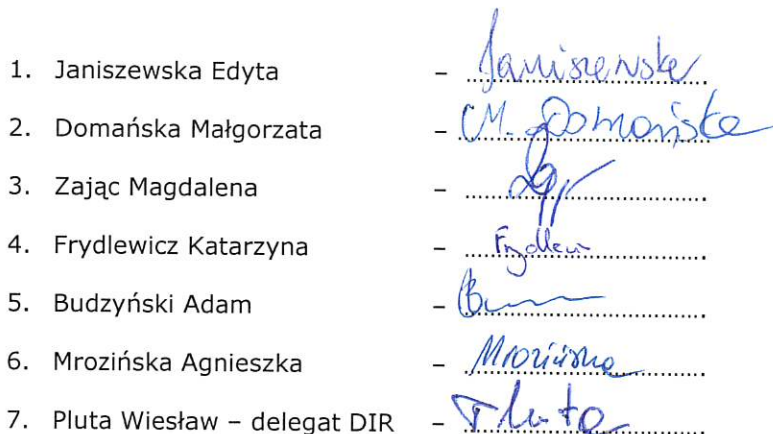 1. Janiszewska Edyta – Janiszewska
2. Domańska Małgorzata – M. Domańska
3. Zając Magdalena –
4. Frydlewicz Katarzyna –
5. Budzyński Adam –
6. Mrozińska Agnieszka – Mrozińska
7. Pluta Wiesław – delegat DIR – Pluta